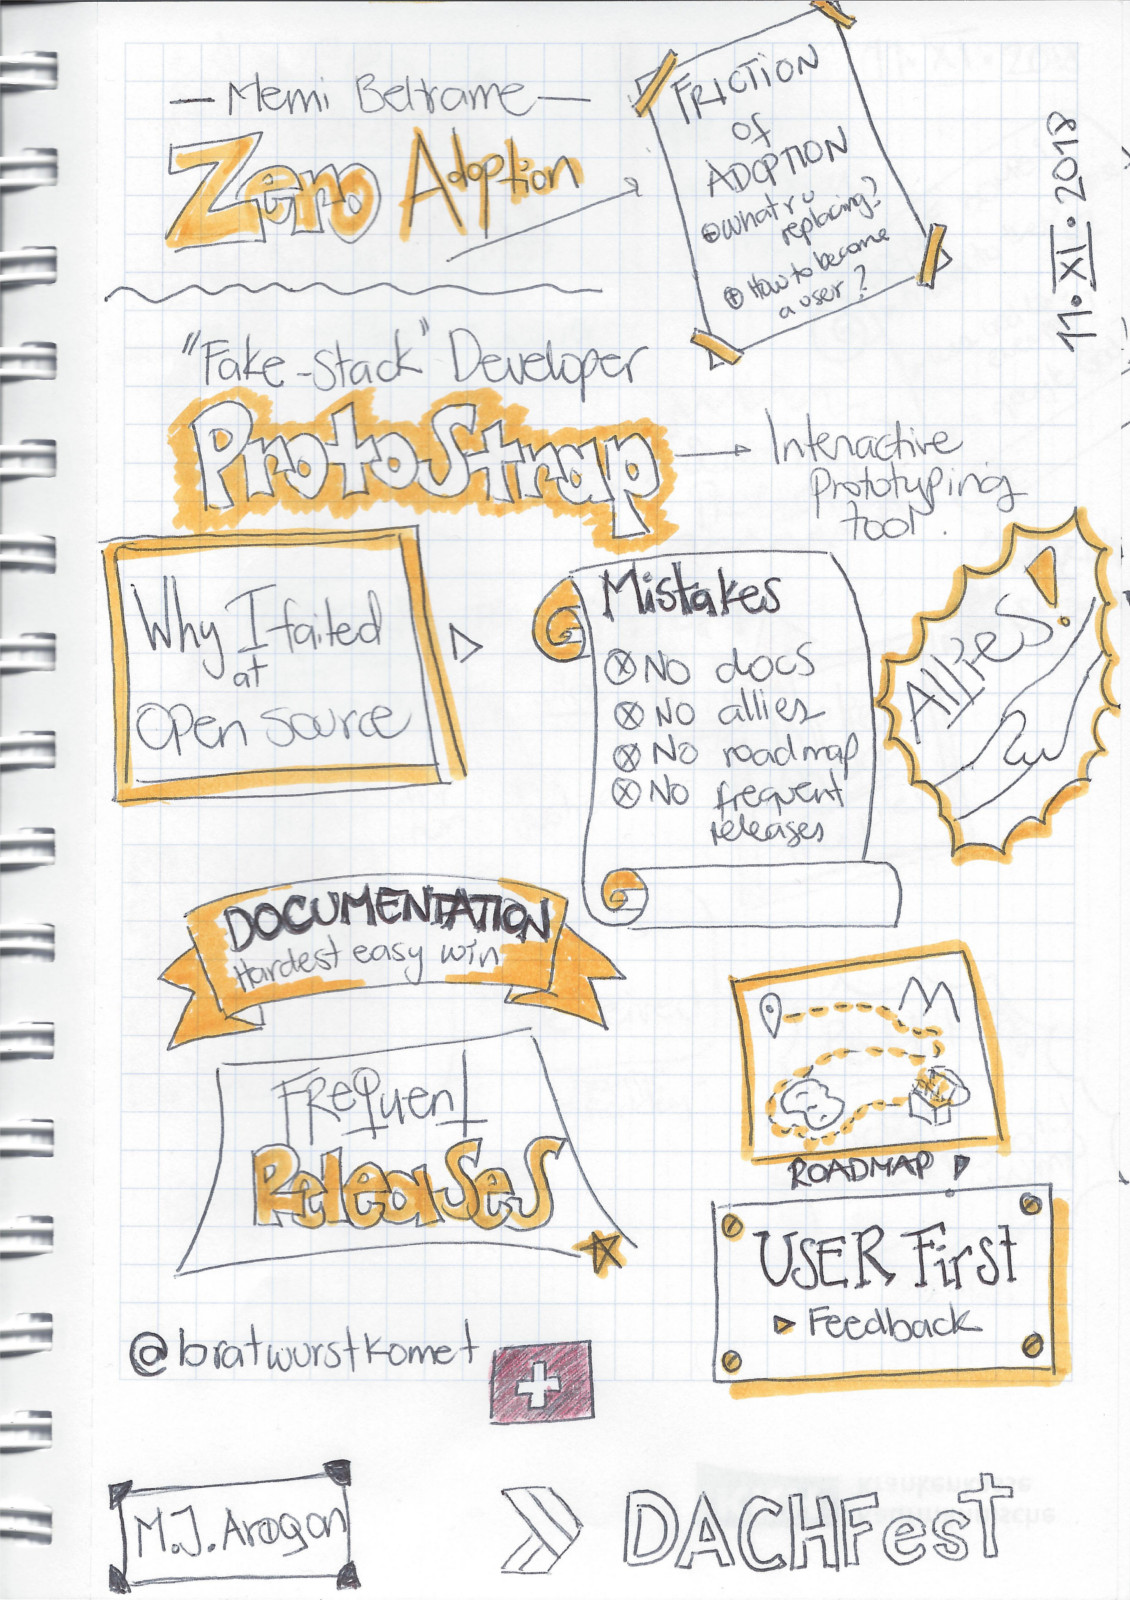 — Memi Beltrame —
Zero Adoption
FRICTION
of
ADOPTION
What r u
replacing?
How to become
a user?
11.XI.2017
"Fake-stack" Developer
ProtoStrap
Interactive
Prototyping
tool.
Why I failed
at
open source
Mistakes
No docs
No allies
No roadmap
No frequent
releases
Allies!
DOCUMENTATION
Hardest easy win
Frequent
Releases
ROADMAP
USER First
Feedback
@bratwurstkomet
M.J. Aragon
DACHFest